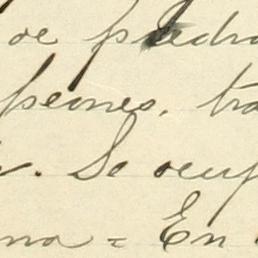 de piedra
peones. tra
. Se ocup
na = En